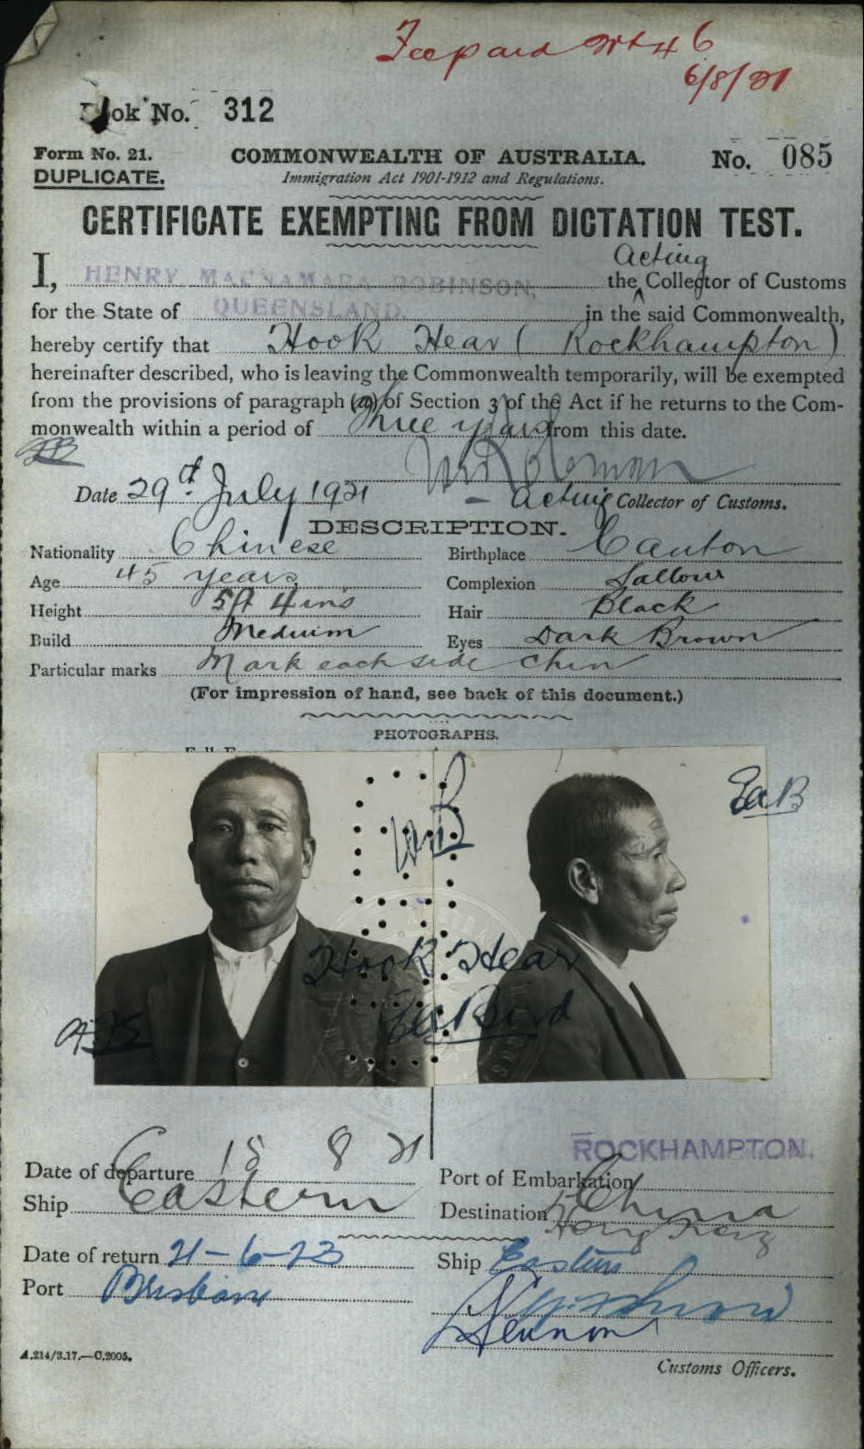 Fee paid
6/8/21
Book No. 312
Form No. 21.
COMMONWEALTH OF AUSTRALIA.
No. 085
DUPLICATE.
Immigration Act 1901-1912 and Regulations.
CERTIFICATE EXEMPTING FROM DICTATION TEST.
Acting
I, HENRY MACNAMARA ROBINSON, the Collector of Customs
for the State of QUEENSLAND. in the said Commonwealth,
hereby certify that Hook Hear (Rockhampton)
hereinafter described, who is leaving the Commonwealth temporarily, will be exempted
from the provisions of paragraph (a) of Section 3 of the Act if he returns to the Com-
monwealth within a period of Three years from this date.
Date 29th July 1921
Acting Collector of Customs.
DESCRIPTION.
Nationality Chinese
Birthplace Canton
Age 45 years
Complexion Sallow
Height 5ft 4ins
Hair Black
Build Medium
Eyes Dark Brown
Particular marks Mark each side chin
(For impression of hand, see back of this document.)
PHOTOGRAPHS.
Hook Hear
ROCKHAMPTON.
Date of departure 15 8 21
Port of Embarkation
Ship Eastern
Destination China
Hong Kong
Date of return 21-6-23
Ship Eastern
Port Brisbane
A.214/3.17.—C.2005.
Customs Officers.